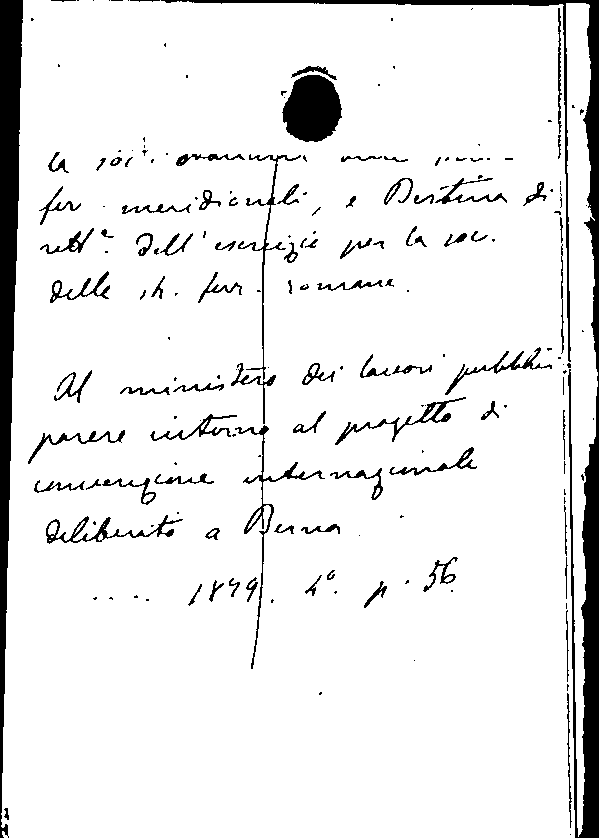 la soc.
fer. meridionali, e Bertina di
rett.e dell'esercizio per la soc.
delle st. ferr. romane.
Al ministero dei lavori pubblici
parere intorno al progetto di
convenzione internazionale
deliberato a Berna
.... 1879. 4°. p. 56.